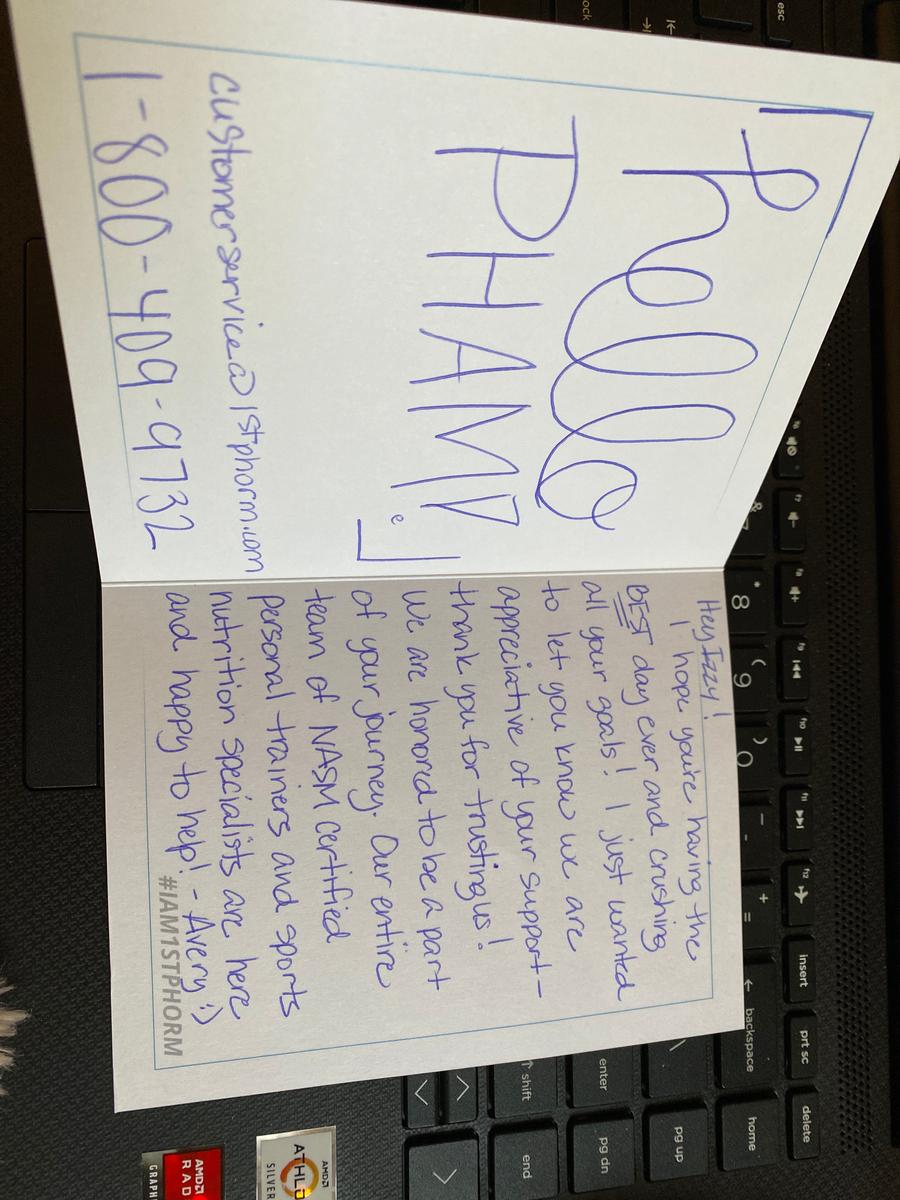 hello
PHAM!
customerservice@1stphorm.com
1-800-409-9732
Hey Izzy!
I hope you're having the
BEST day ever and crushing
all your goals! I just wanted
to let you know we are
appreciative of your support -
thank you for trusting us!
We are honored to be a part
of your journey. Our entire
team of NASM certified
personal trainers and sports
nutrition specialists are here
and happy to help! - Avery :)
#IAM1STPHORM
esc
insert
prt sc
delete
f7
f8
f9
f10
f11
f12
* 8
( 9
) 0
_ -
+ =
← backspace
home
\
pg up
enter
pg dn
↑ shift
end
AMD
ATHL
SILVER
AMD
RAD
GRAPH